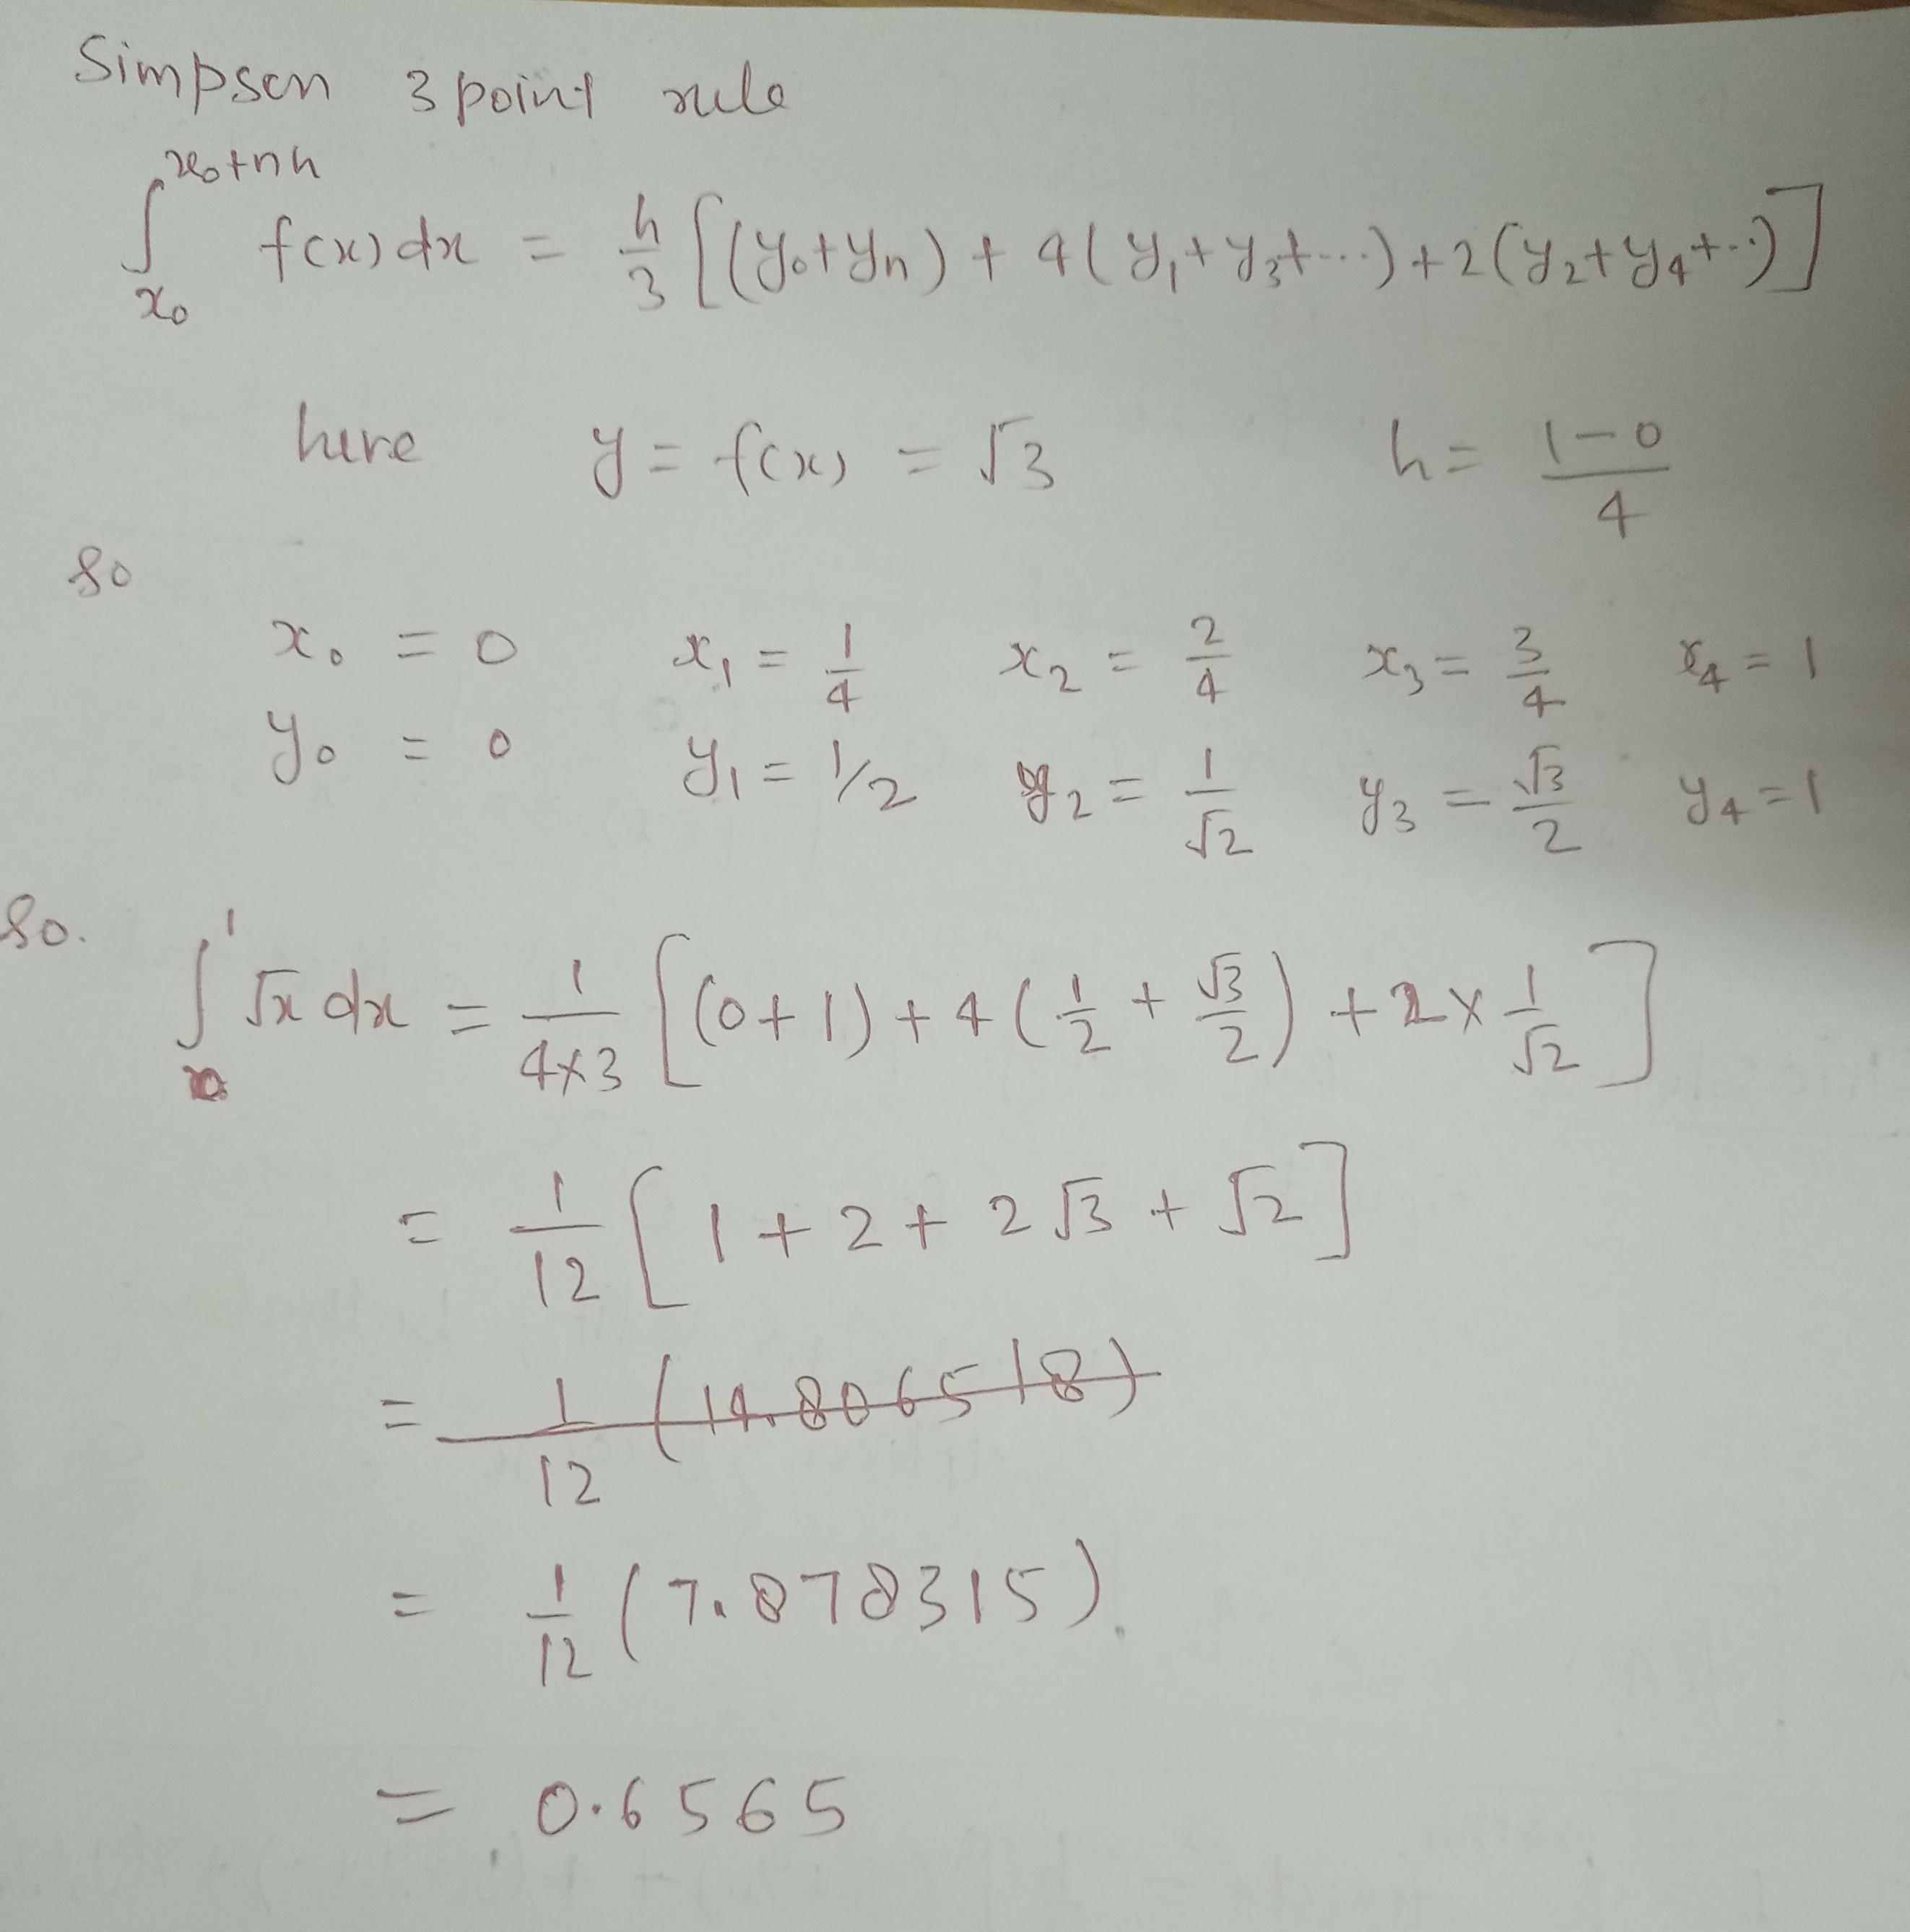 Simpson 3 point rule
∫_{x₀}^{x₀+nh} f(x) dx = h/3 [(y₀+yₙ) + 4(y₁+y₃+...) + 2(y₂+y₄+..)]
here y = f(x) = √3 h = (1-0)/4
so
x₀ = 0 x₁ = 1/4 x₂ = 2/4 x₃ = 3/4 x₄ = 1
y₀ = 0 y₁ = 1/2 y₂ = 1/√2 y₃ = √3/2 y₄ = 1
so. ∫₀¹ √x dx = 1/(4×3) [(0+1) + 4(1/2 + √3/2) + 2×1/√2]
= 1/12 [1 + 2 + 2√3 + √2]
= 1/12 (14.806518)
= 1/12 (7.878315).
= 0.6565